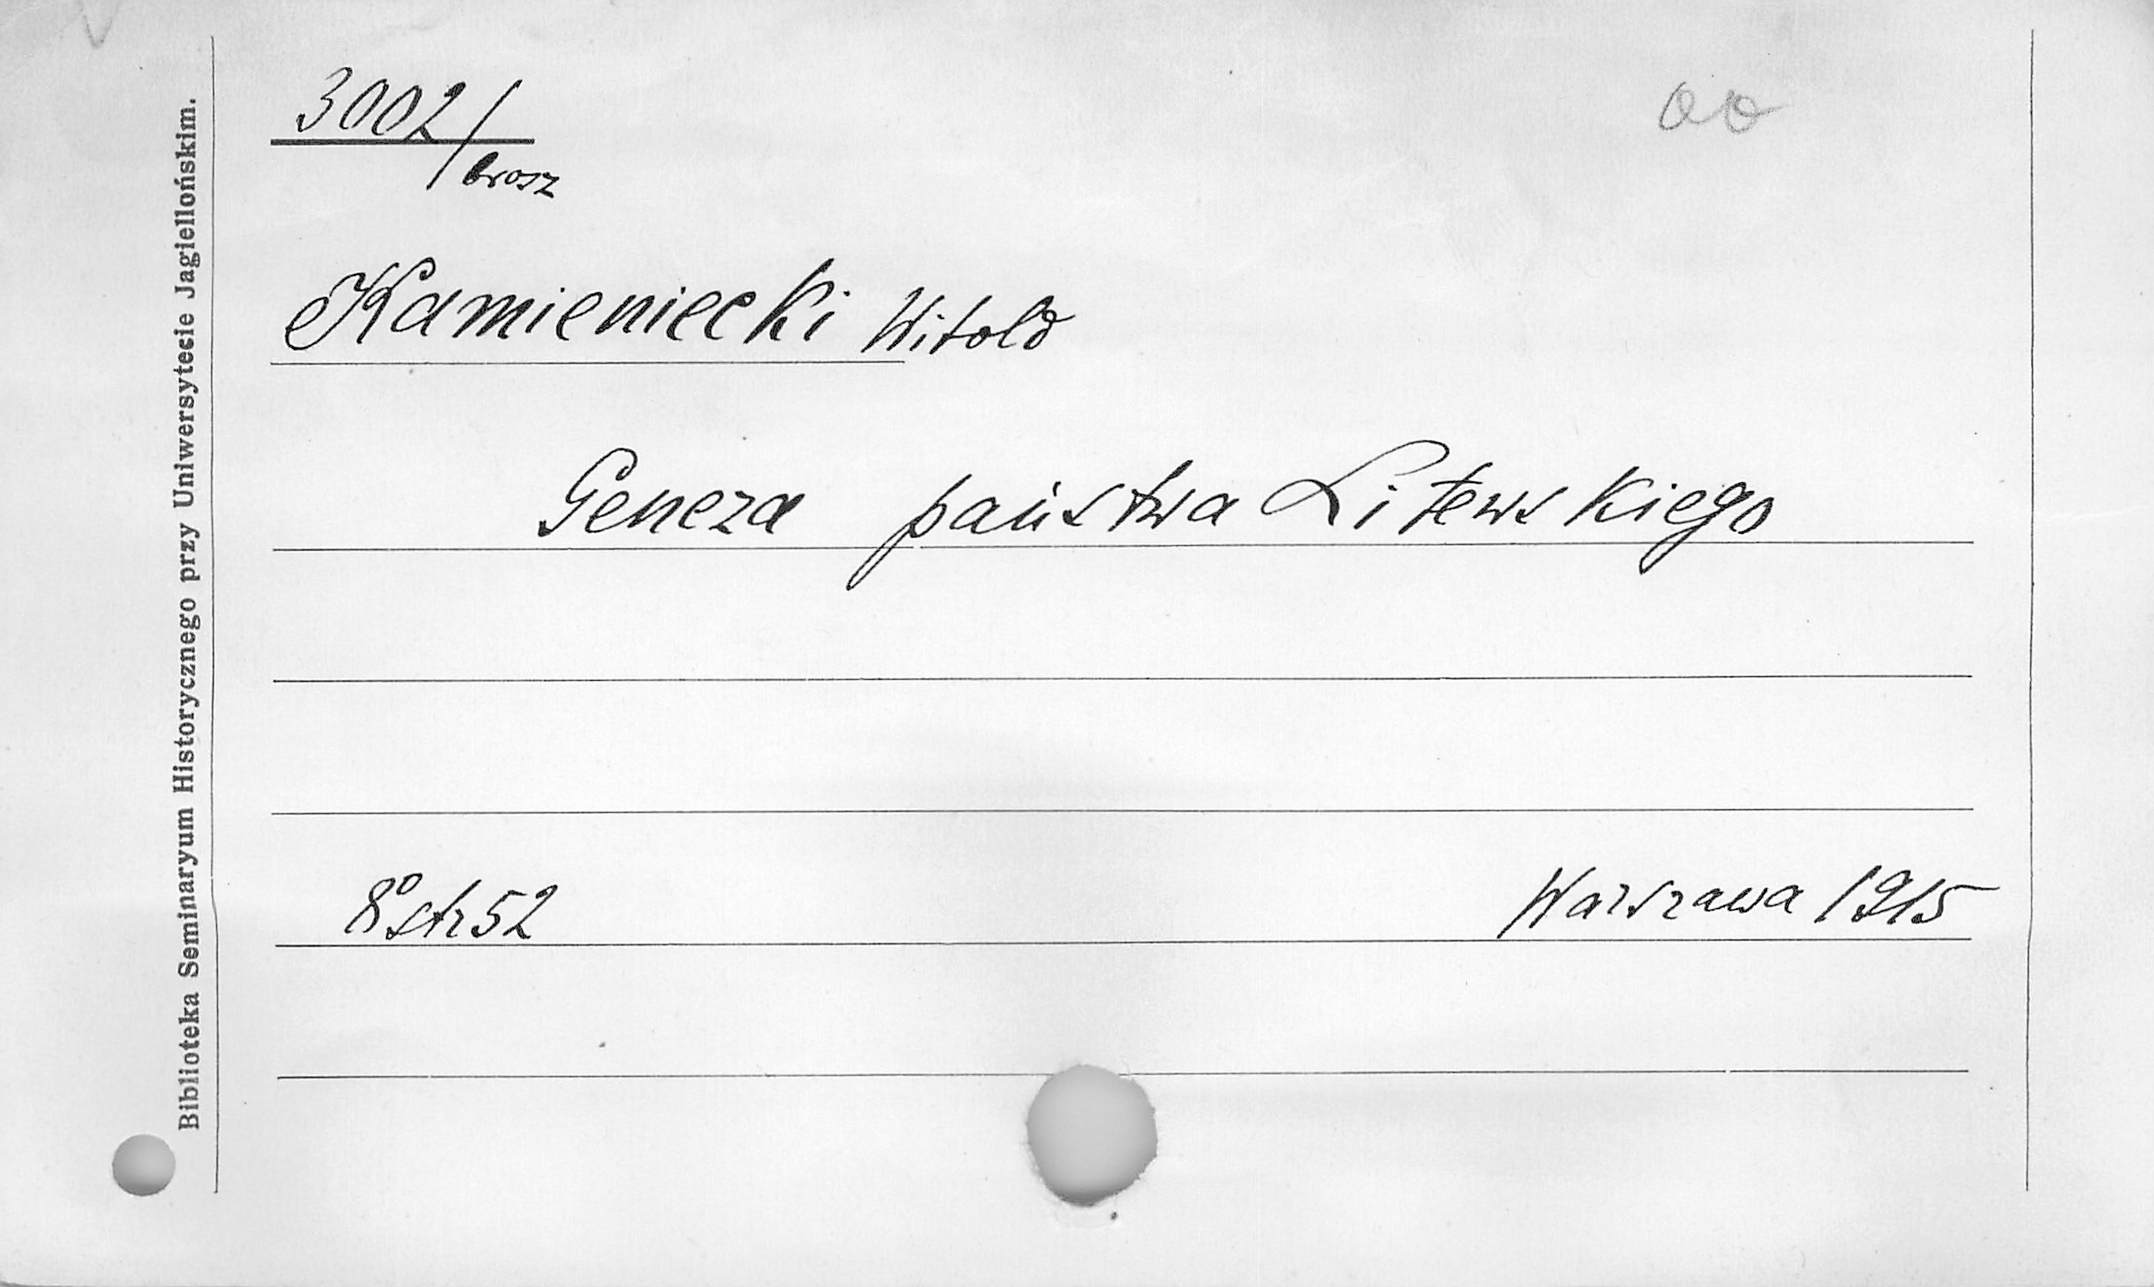 3002/
brosz
oo
Kamieniecki Witold
Geneza państwa Litewskiego
8° str 52
Warszawa 1915
Biblioteka Seminaryum Historycznego przy Uniwersytecie Jagiellońskim.